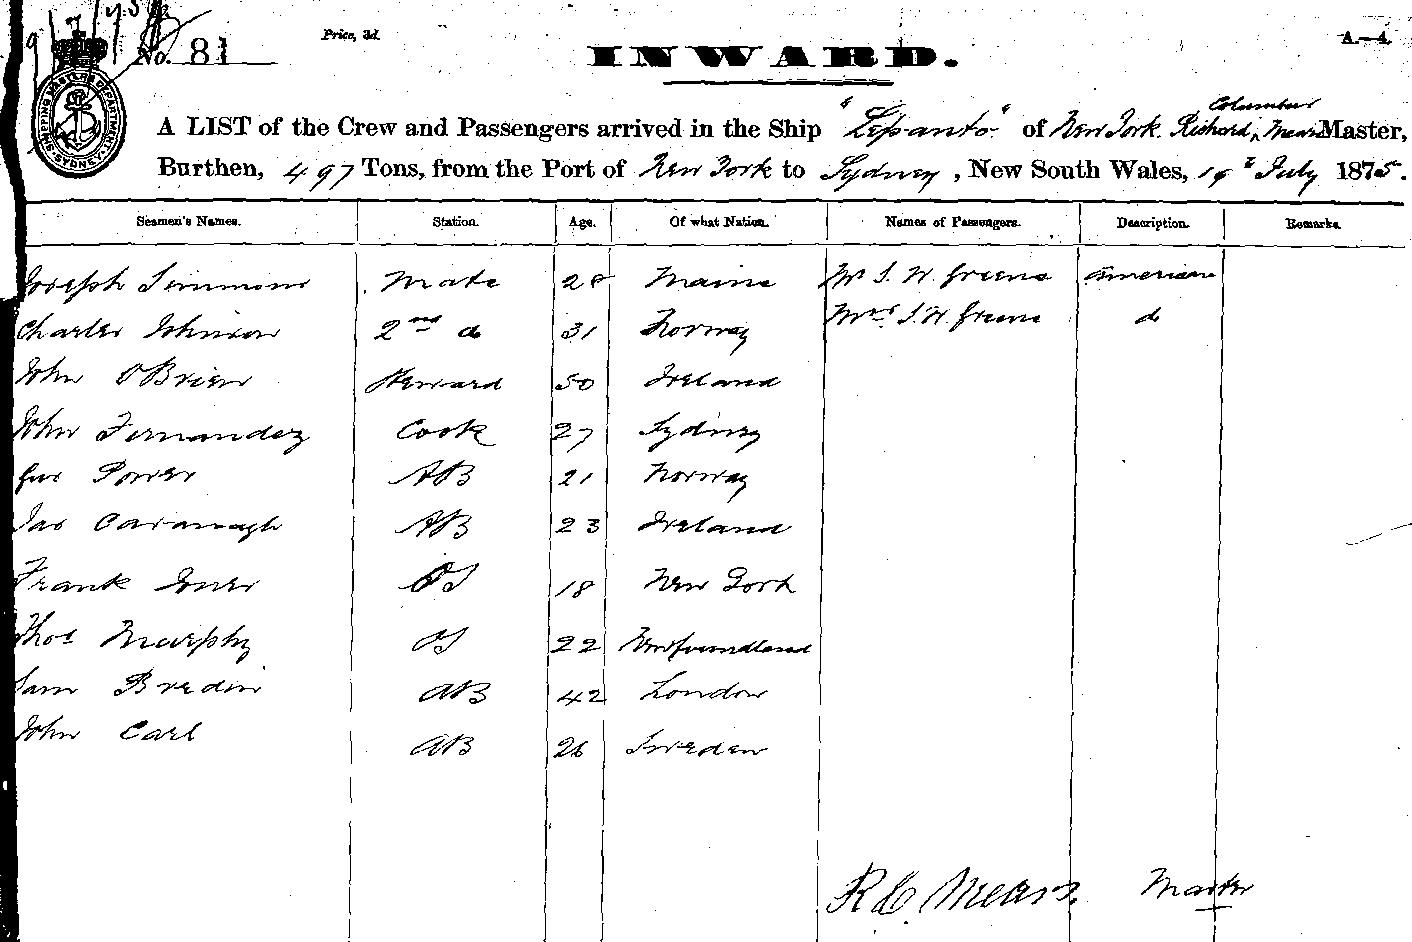 No. 81
Price, 3d.
A.—4.
INWARD.
SHIPPING MASTER'S DEPARTMENT SYDNEY
A LIST of the Crew and Passengers arrived in the Ship "Lepanto" of New York. Richard Columbus Mears Master,
Burthen, 497 Tons, from the Port of New York to Sydney, New South Wales, July 1875.
Seamen's Names. Station. Age. Of what Nation. Names of Passengers. Description. Remarks.
Joseph Simmons Mate 28 Maine Mr S. W. Greene American
Charles Johnson 2nd do 31 Norway Mrs S. W. Greene do
John OBrien Steward 50 Ireland
John Fernandez Cook 27 Sydney
Power AB 21 Norway
Jas Cavanagh AB 23 Ireland
Frank Jones OS 18 New York
Thos Murphy OS 22 Newfoundland
Sam Bredin AB 42 London
John Carl AB 26 Sweden
R C. Mears. Master